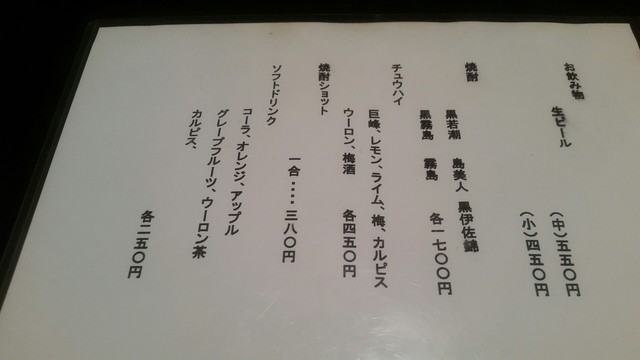 お飲み物
生ビール
（中）五五〇円
（小）四五〇円
焼酎
黒若潮　島美人　黒伊佐錦
黒霧島　霧島　各一七〇〇円
チュウハイ
巨峰、レモン、ライム、梅、カルピス
ウーロン、梅酒　各四五〇円
焼酎ショット
一合・・・・三八〇円
ソフトドリンク
コーラ、オレンジ、アップル
グレープフルーツ、ウーロン茶
カルピス、
各二五〇円